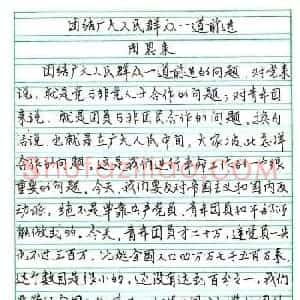 团结广大人民群众一道前进
周恩来
团结广大人民群众一道前进的问题，对党来
说，就是党与非党人士合作的问题；对青年团
来说，就是团员与非团员合作的问题。换句
话说，也就是在广大人民中间，大家彼此怎样
合作的问题。这是我们进行革命工作的一个很
重要的问题。今天，我们要反对帝国主义和国内反
动派，绝不是单靠共产党员、青年团员和
能做成的。今天，青年团员才二十万，连党员一共
也不过三百万，比起全国人口四万万七千五百万来，
这个数目是很小的，还没有达到百分之一。我们